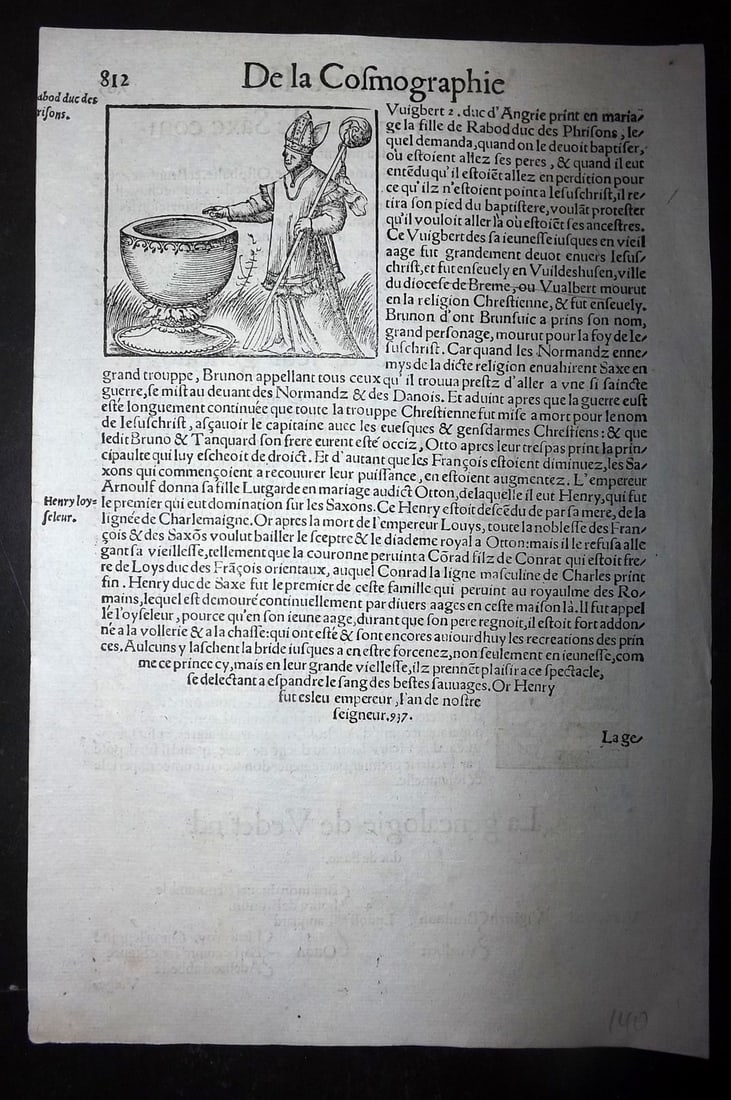 812
De la Coſmographie
abod duc des
riſons.
Vuigbert 2. duc d'Angrie print en maria⸗
ge la fille de Rabod duc des Phriſons, le⸗
quel demanda, quand on le deuoit baptiſer,
ou eſtoient allez ſes peres, & quand il eut
entẽdu qu'il eſtoiẽt allez en perdition pour
ce qu'ilz n'eſtoient point a Ieſuſchriſt, il re⸗
tira ſon pied du baptiſtere, voulãt proteſter
qu'il vouloit aller là ou eſtoiẽt ſes anceſtres.
Ce Vuigbert des ſa ieuneſſe iuſques en vieil
aage fut grandement deuot enuers Ieſuſ⸗
chriſt, et fut enſeuely en Vuildeshuſen, ville
du dioceſe de Breme, ou Vualbert mourut
en la religion Chreſtienne, & fut enſeuely.
Brunon d'ont Brunſuic a prins ſon nom,
grand perſonage, mourut pour la foy de Ie⸗
ſuſchriſt. Car quand les Normandz enne⸗
mys de la dicte religion enuahirent Saxe en
grand trouppe, Brunon appellant tous ceux qu'il trouua preſtz d'aller a vne ſi ſaincte
guerre, ſe miſt au deuant des Normandz & des Danois. Et aduint apres que la guerre euſt
eſté longuement continuée que toute la trouppe Chreſtienne fut miſe a mort pour le nom
de Ieſuſchriſt, aſçauoir le capitaine auec les eueſques & genſdarmes Chreſtiens: & que
ledit Bruno & Tanquard ſon frere eurent eſté occiz, Otto apres leur treſpas print la prin⸗
cipaulte qui luy eſcheoit de droict. Et d'autant que les François eſtoient diminuez, les Sa⸗
xons qui commençoient a recouurer leur puiſſance, en eſtoient augmentez. L'empereur
Arnoulf donna ſa fille Lutgarde en mariage audict Otton, delaquelle il eut Henry, qui fut
Henry loy⸗
ſeleur.
le premier qui eut domination ſur les Saxons. Ce Henry eſtoit deſcẽdu de par ſa mere, de la
lignée de Charlemaigne. Or apres la mort de l'empereur Louys, toute la nobleſſe des Fran⸗
çois & des Saxõs voulut bailler le ſceptre & le diademe royal a Otton: mais il le refuſa alle
gant ſa vieilleſſe, tellement que la couronne peruint a Cõrad filz de Conrat qui eſtoit fre⸗
re de Loys duc des Frãçois orientaux, auquel Conrad la ligne maſculine de Charles print
fin. Henry duc de Saxe fut le premier de ceſte famille qui peruint au royaulme des Ro⸗
mains, lequel eſt demouré continuellement par diuers aages en ceſte maiſon là. Il fut appel
lé l'oyſeleur, pource qu'en ſon ieune aage, durant que ſon pere regnoit, il eſtoit fort addon⸗
né a la vollerie & a la chaſſe: qui ont eſté & ſont encores auiourd'huy les recreations des prin
ces. Aulcuns y laſchent la bride iuſques a en eſtre forcenez, non ſeulement en ieuneſſe, com
me ce prince cy, mais en leur grande vielleſſe, ilz prennẽt plaiſir a ce ſpectacle,
ſe delectant a eſpandre le ſang des beſtes ſauuages. Or Henry
fut esleu empereur, l'an de noſtre
ſeigneur. 937.
La ge⸗
140